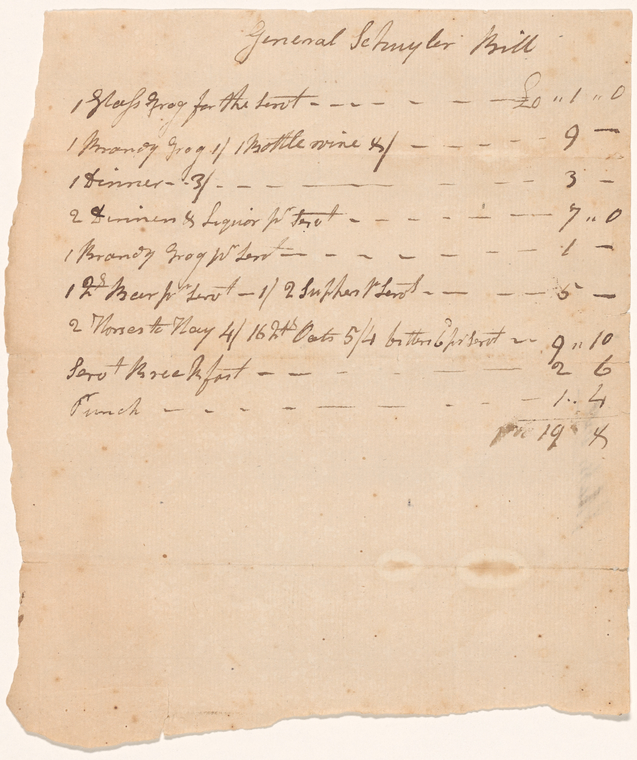 General Schuyler Bill
1 Glass Grog for the Servt - - - - - - £0 " 1 " 0
1 Brandy Grog 1/ 1 Bottle wine 8/ - - - - 9 —
1 Dinner - - 3/ - - - - - - 3 -
2 Dinners & Liquor pr Servt - - - - - 7 " 0
1 Brandy Grog pr Servt - - - - - 1 -
1 Qt Beer pr Servt - 1/ 2 Suphers pr Servt - - - - 5 —
2 Horses to Hay 4/ 16 Qts Oats 5/4 bitters 6 pr Servt - - 9 " 10
Servt Breekfast - - - - - - - 2 6
Punch - - - - - - - - 1 " 4
19 8